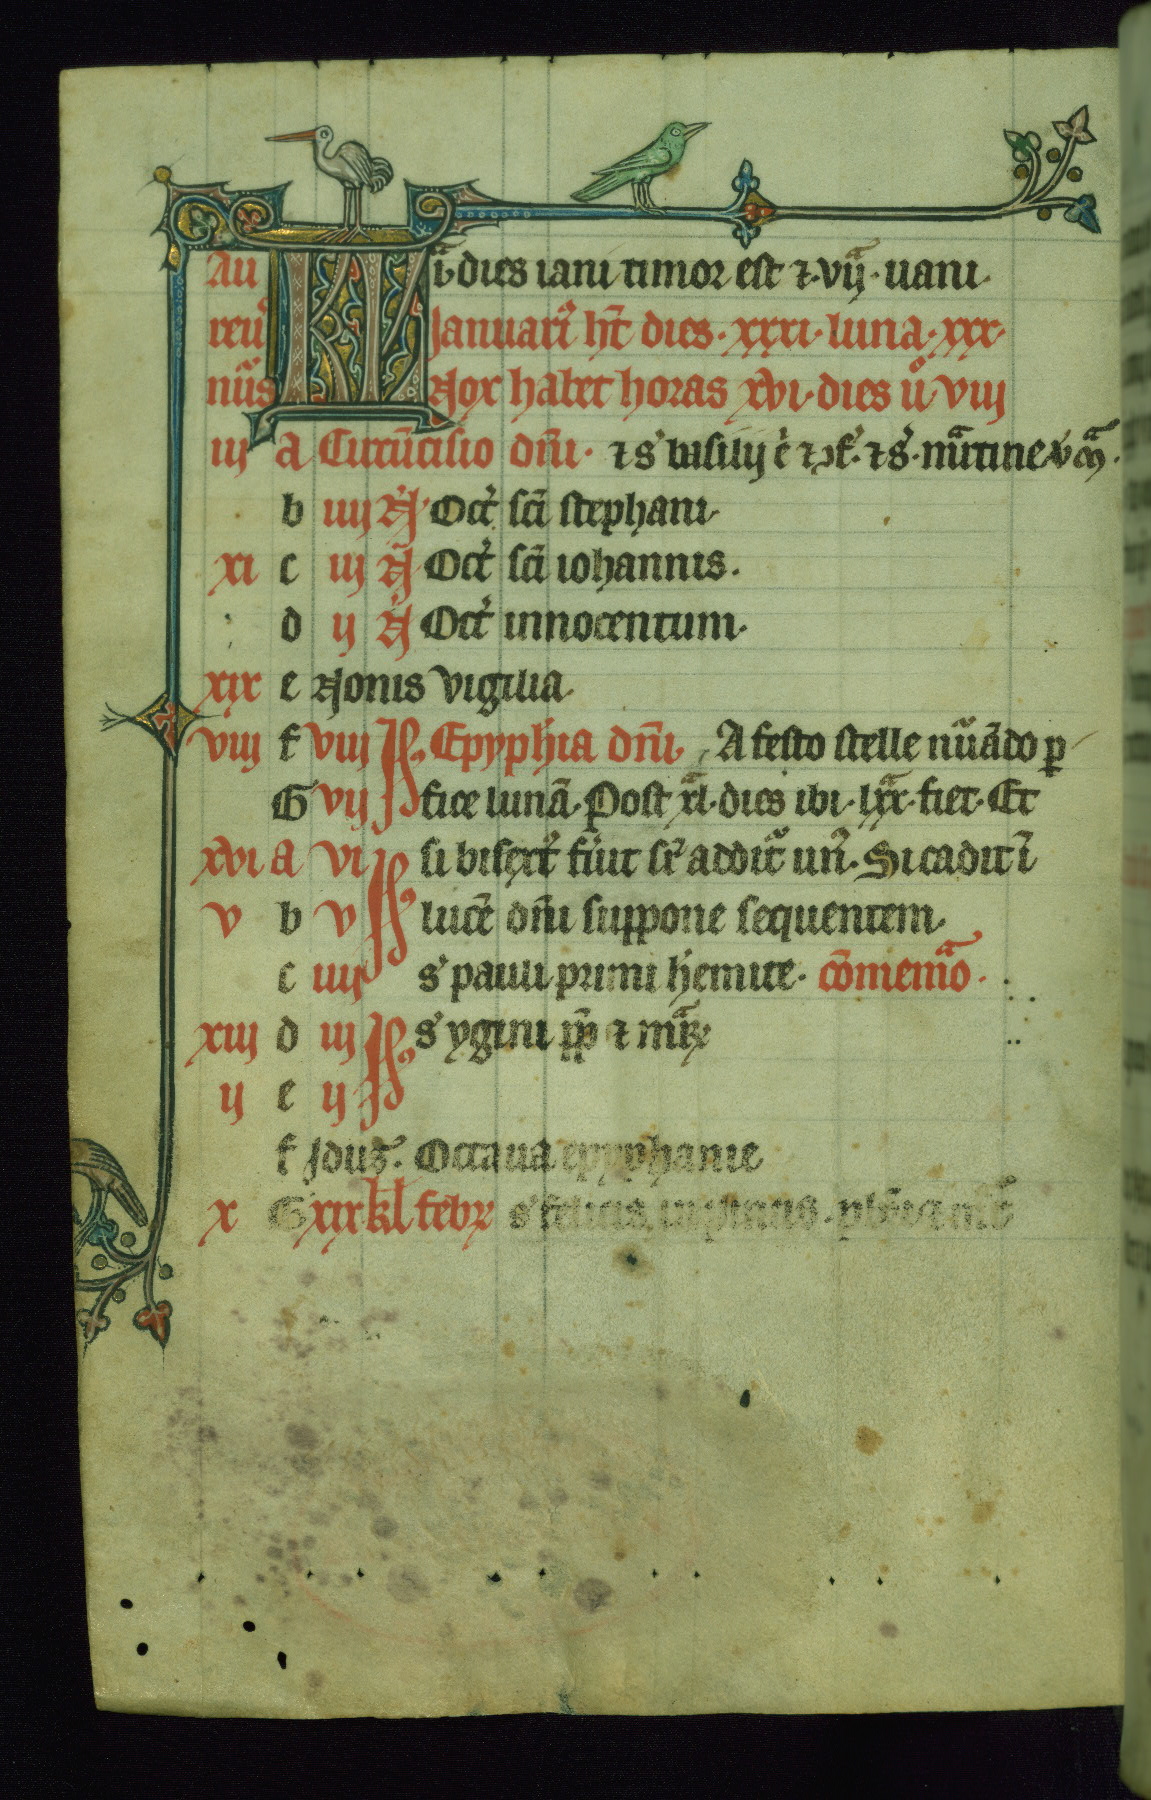 Au KL i᷑. dies iani timor est ⁊ vij᷑. uani.
reu᷑ Januari᷑ ht̄ dies. xxxi. luna. xxx.
nūs Nox habet horas xvi. dies u᷑ viij
iij a Circūcisio dn̄i. ⁊ s' basilij
b iiij N᷑. Oct᷑ sc̄i stephani.
xi c iij N᷑ Oct᷑ sc̄i iohannis.
d ij N᷑ Oct᷑ innocentum.
xix e Nonis vigilia.
viij f viij Jd᷑ Epyph'ia dn̄i. A festo stelle nu᷑ādo p
G vij Jd᷑ fice lunā. Post xl᷑. dies ibi. lxx᷑. fiet. Et
xvi a vi Jd᷑ si bisext᷑ fu᷑it sr᷑ addit᷑ un᷑. Si cadit ī
v b v Jd᷑ lucē dn̄i suppone sequentem.
c iiij s' pauli primi h'emite. cōmemo᷑.
xiij d iij Jd᷑ s' ygini pp̄ ⁊ mr᷑is
ij e ij Jd᷑
f Jdus. Octaua epyphanie
x G xix kl febr s' felicis in pincis.